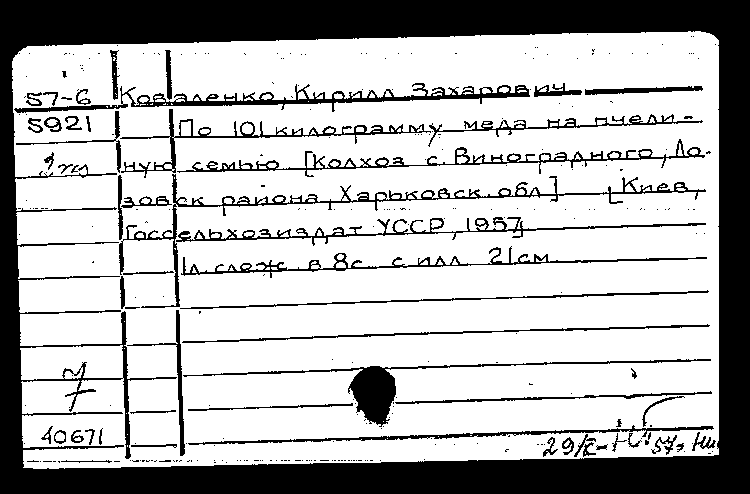 57-6 Коваленко, Кирилл Захарович
5921 По 101 килограмму меда на пчели-
ную семью [Колхоз с. Виноградного, Ло-
зовск района, Харьковск. обл] [Киев,
Госсельхозиздат УССР, 1957]
1л слож в 8с с илл 21см
7
40671
29/X- 57г